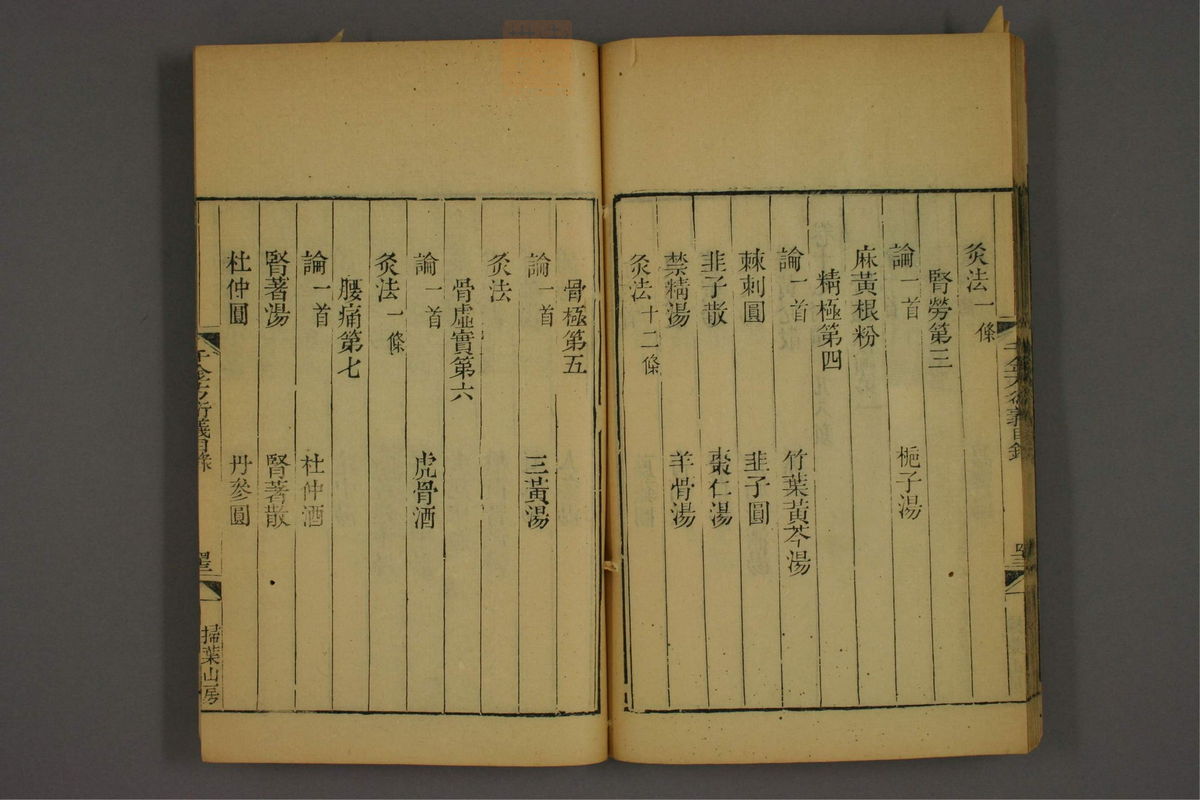 灸法一條
腎勞第三
論一首 梔子湯
麻黃根粉
精極第四
論一首 竹葉黃芩湯
棘刺圓 韭子圓
韭子散 棗仁湯
禁精湯 羊骨湯
灸法十二條
骨極第五
論一首 三黃湯
灸法
骨虛實第六
論一首 虎骨酒
灸法一條
腰痛第七
論一首 杜仲酒
腎著湯 腎著散
杜仲圓 丹參圓
千金方衍義目錄
掃葉山房